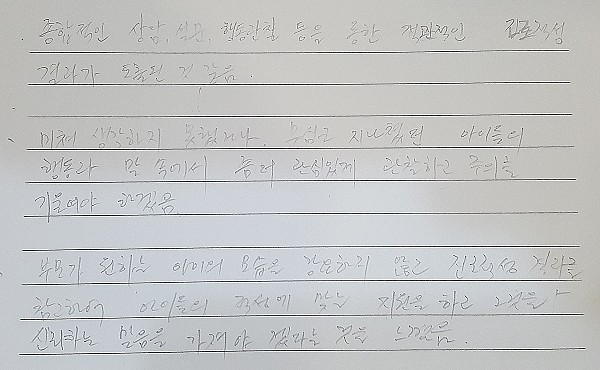 종합적인 상담, 설문, 행동관찰 등을 통한 객관적인 진로적성
결과가 도출된 것 같음.
미쳐 생각하지 못했거나, 무심코 지나쳤던 아이들의
행동과 말 속에서 좀더 관심있게 관찰하고 주의를
기울여야 하겠음
부모가 원하는 아이의 모습을 강요하지 않고 진로적성 결과를
참고하여 아이들의 적성에 맞는 지원을 하고 그것을
신뢰하는 믿음을 가져야 겠다는 것을 느꼈음.